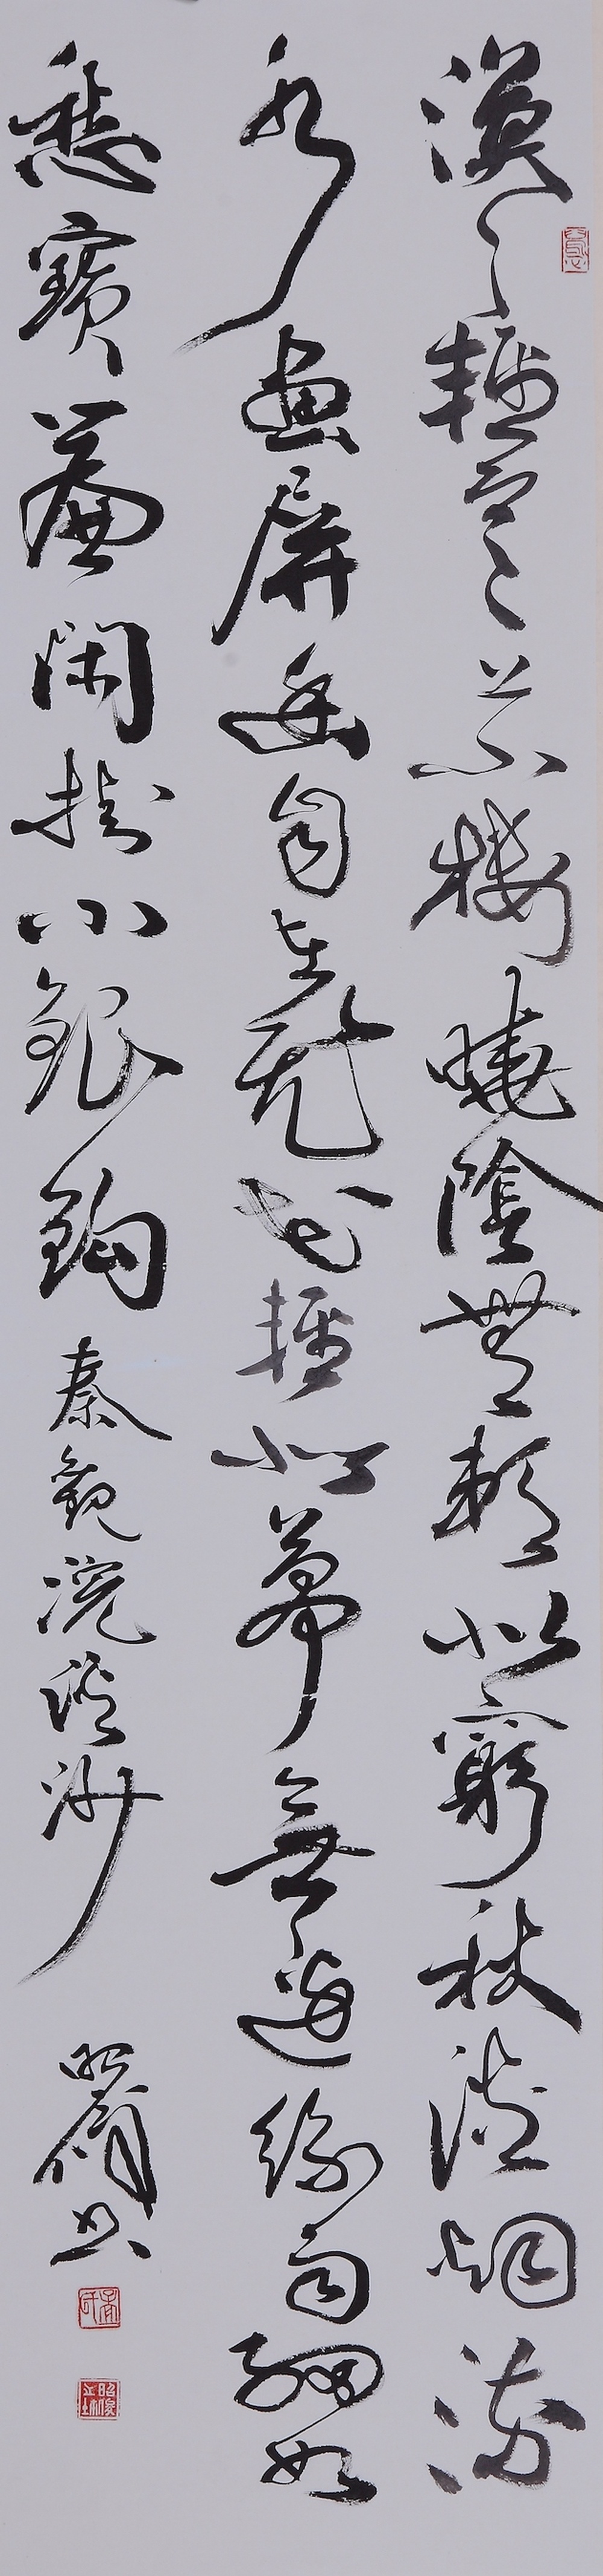 漠〻輕寒上小樓曉陰無賴似窮秋淡烟流
水畫屏幽自在飛花輕似夢無邊絲雨細如
愁寶簾閑掛小銀鉤秦觀浣溪沙昭書